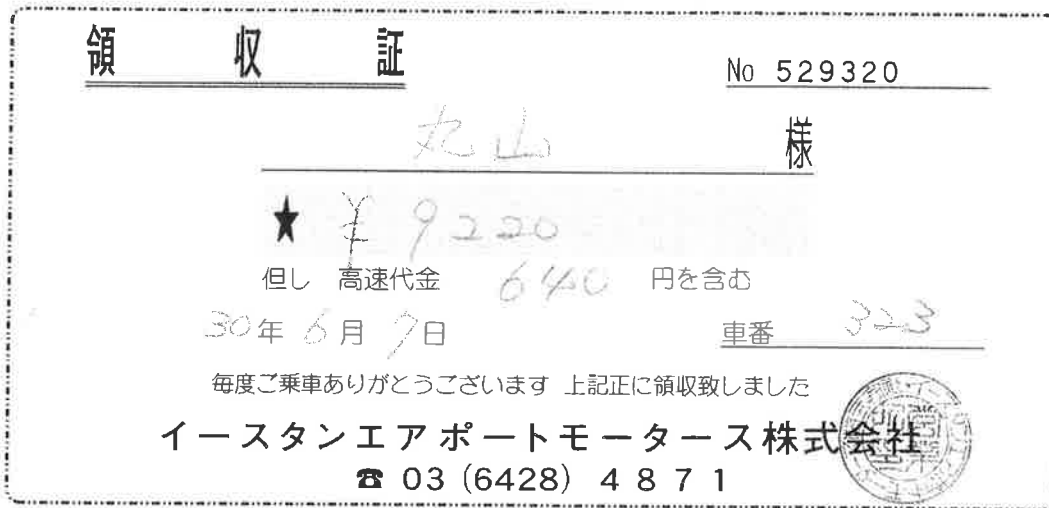 領収証
No 529320
丸山 様
★ ¥9220
但し 高速代金 640 円を含む
30年 6月 7日
車番 323
毎度ご乗車ありがとうございます 上記正に領収致しました
イースタンエアポートモータース株式会社
☎ 03 (6428) 4871